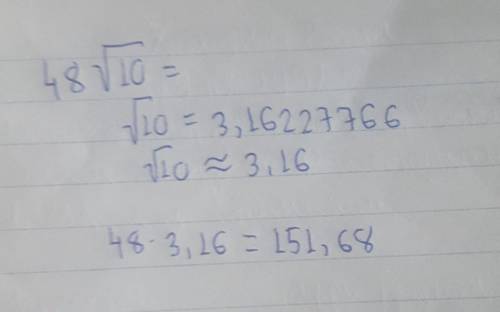 48√10 =
√10 = 3,16227766
√10 ≈ 3,16
48 · 3,16 = 151,68